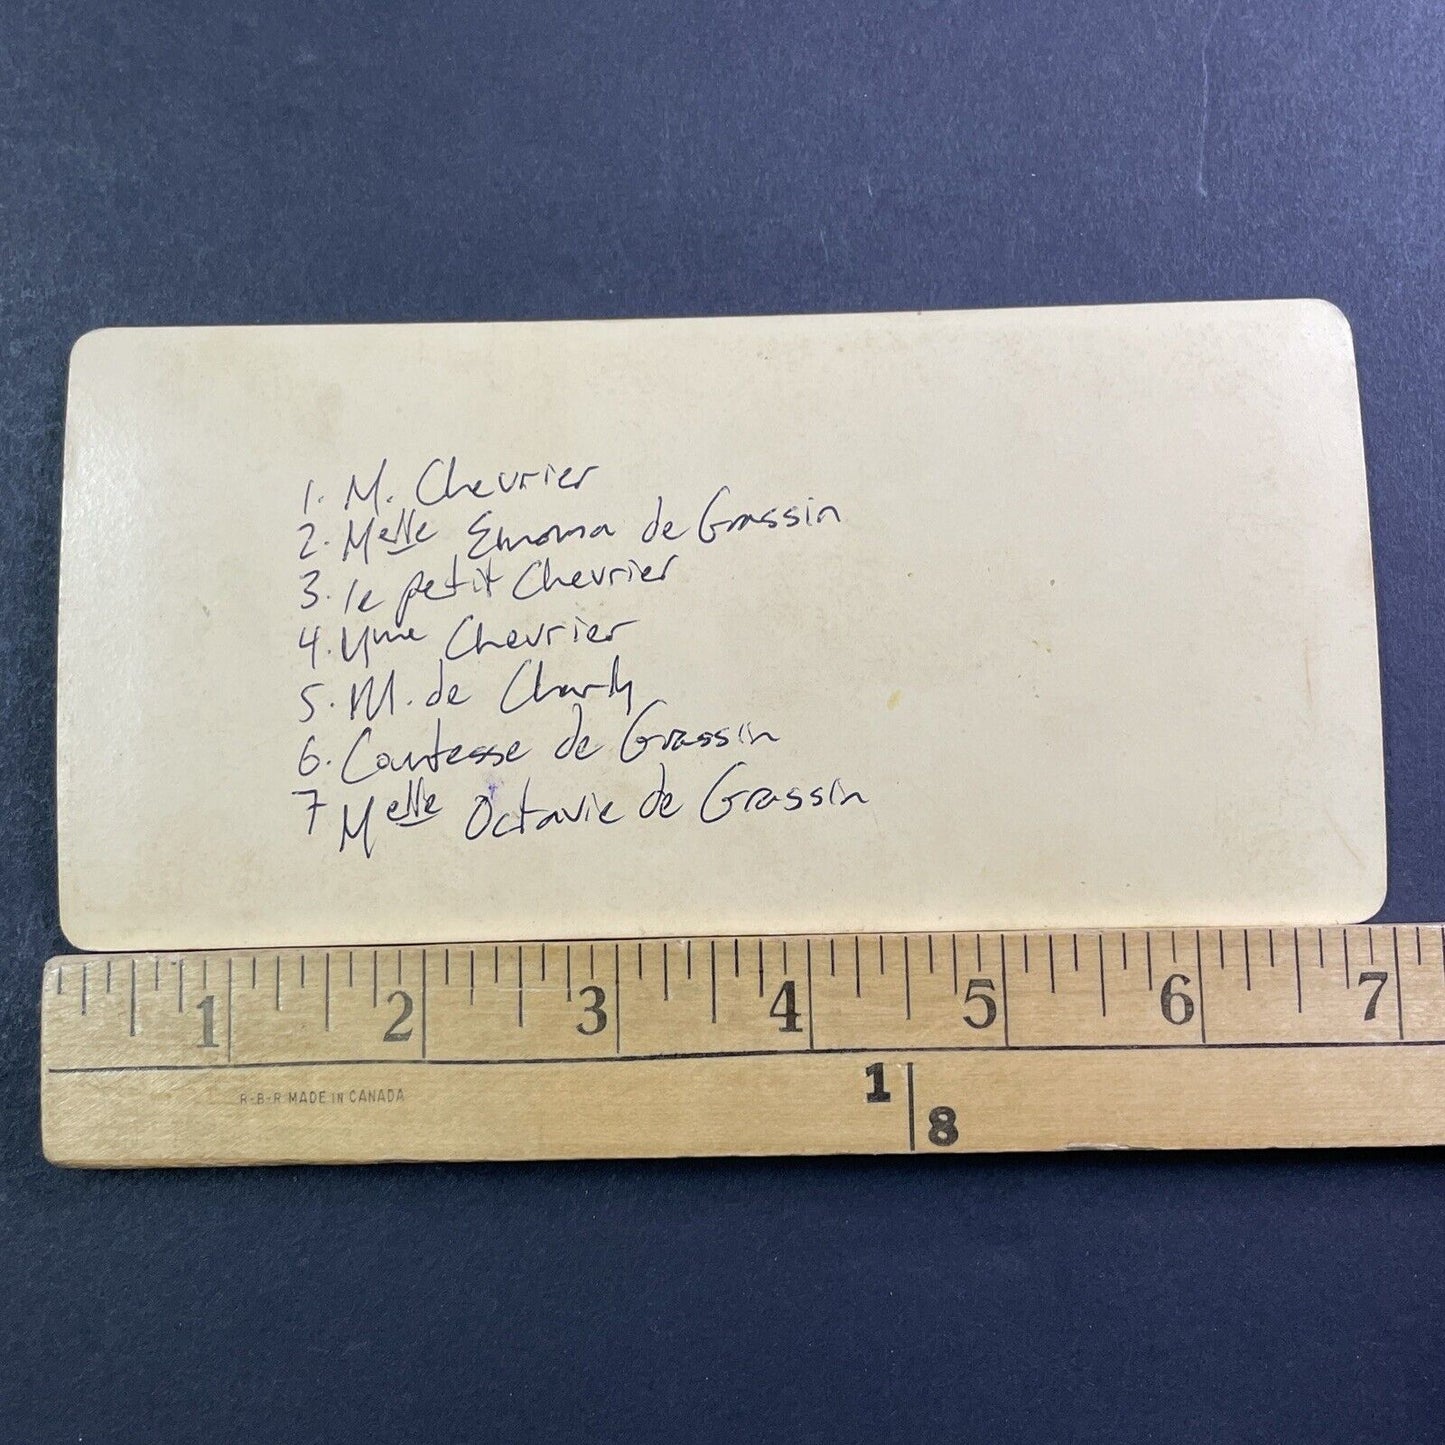 1. M. Chevrier
2. Melle Emma de Grassin
3. le petit Chevrier
4. Mme Chevrier
5. M. de Charly
6. Comtesse de Grassin
7 Melle Octavie de Grassin
1 2 3 4 5 6 7
R-B-R MADE IN CANADA
1
8